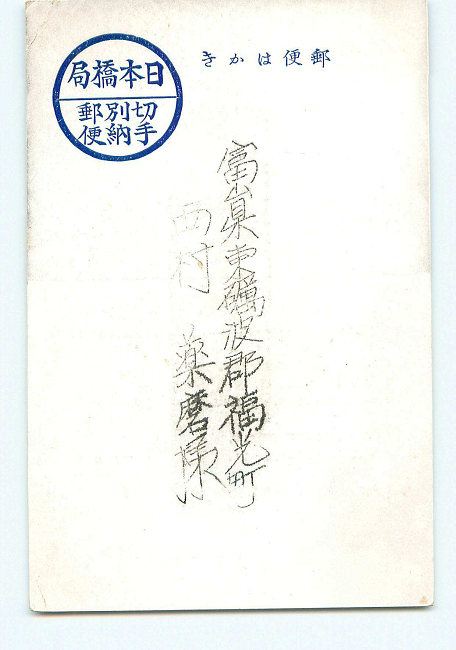 郵便はかき
日本橋局
切手別納郵便
富山県東礪波郡福光町
西村 薬磨様